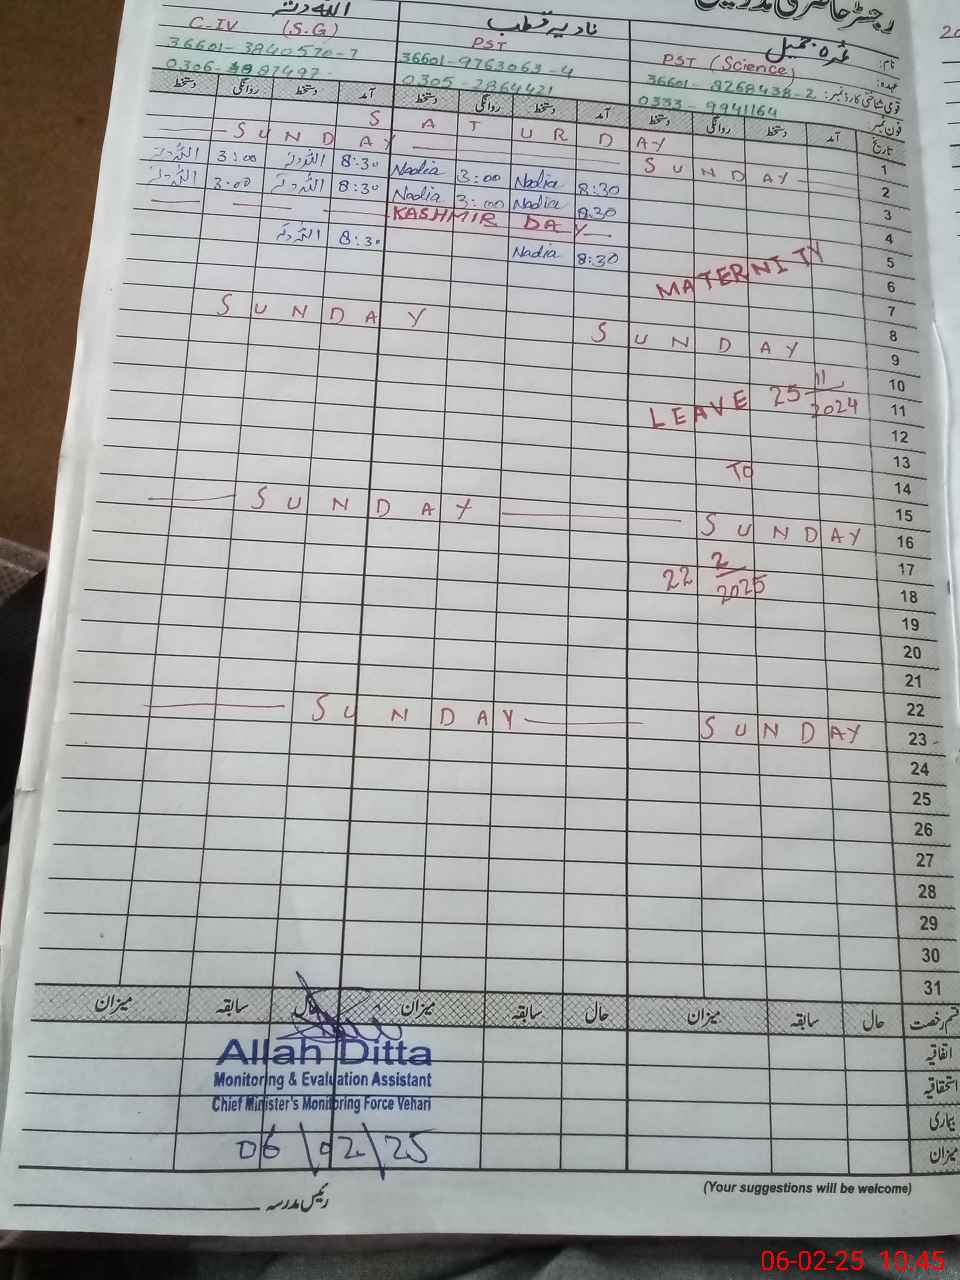 رجسٹر حاضری مدرسین
نام: عمرہ جمیل
نادیہ قطب
اللہ دتہ
عہدہ: PST (Science)
PST
C-IV (S.G)
قومی شناختی کارڈ نمبر: 36601-8268438-2
36601-9763063-4
36601-3840570-7
فون نمبر 0333-9941164
0305-7864421
0306-
تاریخ آمد دستخط روانگی دستخط آمد دستخط روانگی دستخط آمد دستخط روانگی دستخط
1 SATURDAY
2 SUNDAY SUNDAY
3 8:30 Nadia 3:00 Nadia 8:30 اللہ دتہ 3:00 اللہ دتہ
4 8:30 Nadia 3:00 Nadia 8:30 اللہ دتہ 3:00 اللہ دتہ
5 KASHMIR DAY
6 8:30 Nadia 8:30 اللہ دتہ
MATERNITY
7
8
9 SUNDAY SUNDAY
10
11 LEAVE 25 11/2024
12
13
TO
14
15
16 SUNDAY SUNDAY
17
22 2/2025
18
19
20
21
22
23 SUNDAY SUNDAY
24
25
26
27
28
29
30
31
قسم رخصت حال سابقہ میزان حال سابقہ میزان حال سابقہ میزان
اتفاقیہ
استحقاقیہ
بیماری
میزان
Allah Ditta
Monitoring & Evaluation Assistant
Chief Minister's Monitoring Force Vehari
06/02/25
(Your suggestions will be welcome)
رئیس مدرسہ
06-02-25 10:45